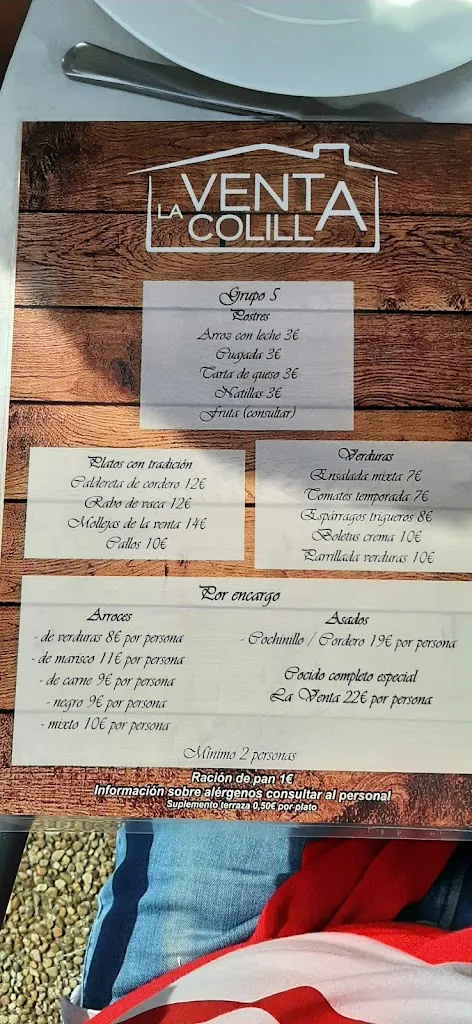 LA VENTA
COLILLA
Grupo 5
Postres
Arroz con leche 3€
Cuajada 3€
Tarta de queso 3€
Natillas 3€
Fruta (consultar)
Platos con tradición
Caldereta de cordero 12€
Rabo de vaca 12€
Mollejas de la venta 14€
Callos 10€
Verduras
Ensalada mixta 7€
Tomates temporada 7€
Espárragos trigueros 8€
Boletus crema 10€
Parrillada verduras 10€
Por encargo
Arroces
- de verduras 8€ por persona
- de marisco 11€ por persona
- de carne 9€ por persona
- negro 9€ por persona
- mixto 10€ por persona
Asados
- Cochinillo / Cordero 19€ por persona
Cocido completo especial
La Venta 22€ por persona
Mínimo 2 personas
Ración de pan 1€
Información sobre alérgenos consultar al personal
Suplemento terraza 0,50€ por plato